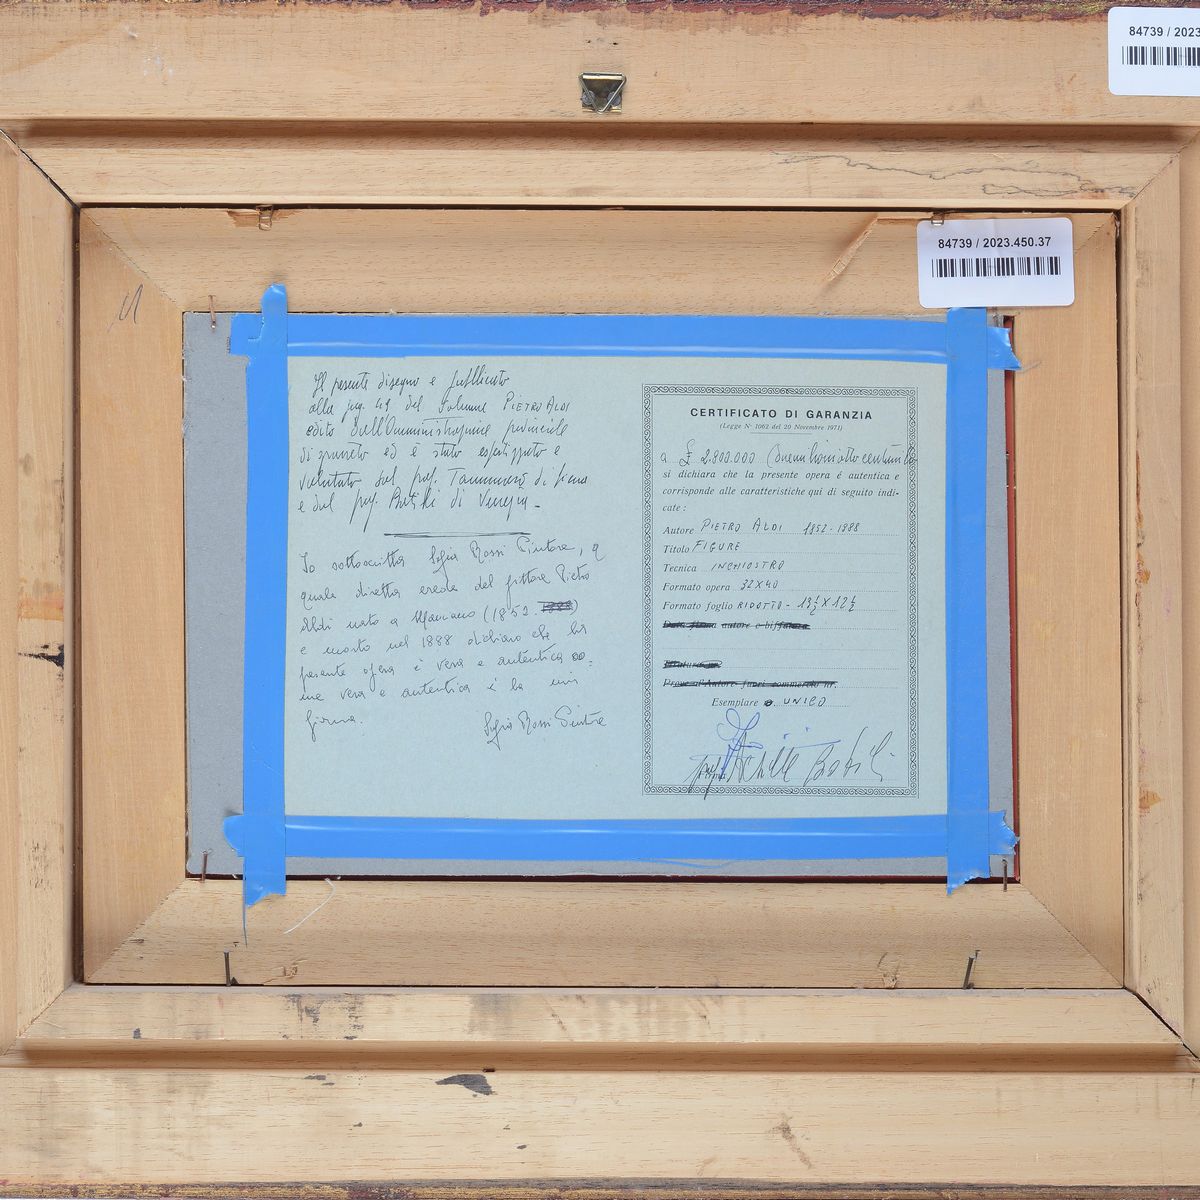 84739 / 2023
84739 / 2023.450.37
Il presente disegno è pubblicato
alla pag. 49 del volume PIETRO ALDI
edito dall'Amministrazione provinciale
di Grosseto ed è stato espertizzato e
valutato dal prof. di Siena
e dal prof. di Venezia -
Io sottoscritta Sofia Rossi Ciutore,
quale diretta erede del pittore Pietro
Aldi nato a Manciano (1852
e morto nel 1888 dichiaro che la
presente opera è vera e autentica co=
me vera e autentica è la mia
firma.
Sofia Rossi
CERTIFICATO DI GARANZIA
(Legge N° 1062 del 20 Novembre 1971)
a £ 2.800.000 (duemilioniottocentomila
si dichiara che la presente opera é autentica e
corrisponde alle caratteristiche qui di seguito indi-
cate :
Autore PIETRO ALDI 1852-1888
Titolo FIGURE
Tecnica INCHIOSTRO
Formato opera 32X40
Formato foglio RIDOTTO - 19½ X 12½
Prove d'Autore fuori commercio nr.
Esemplare UNICO
Firma Achille